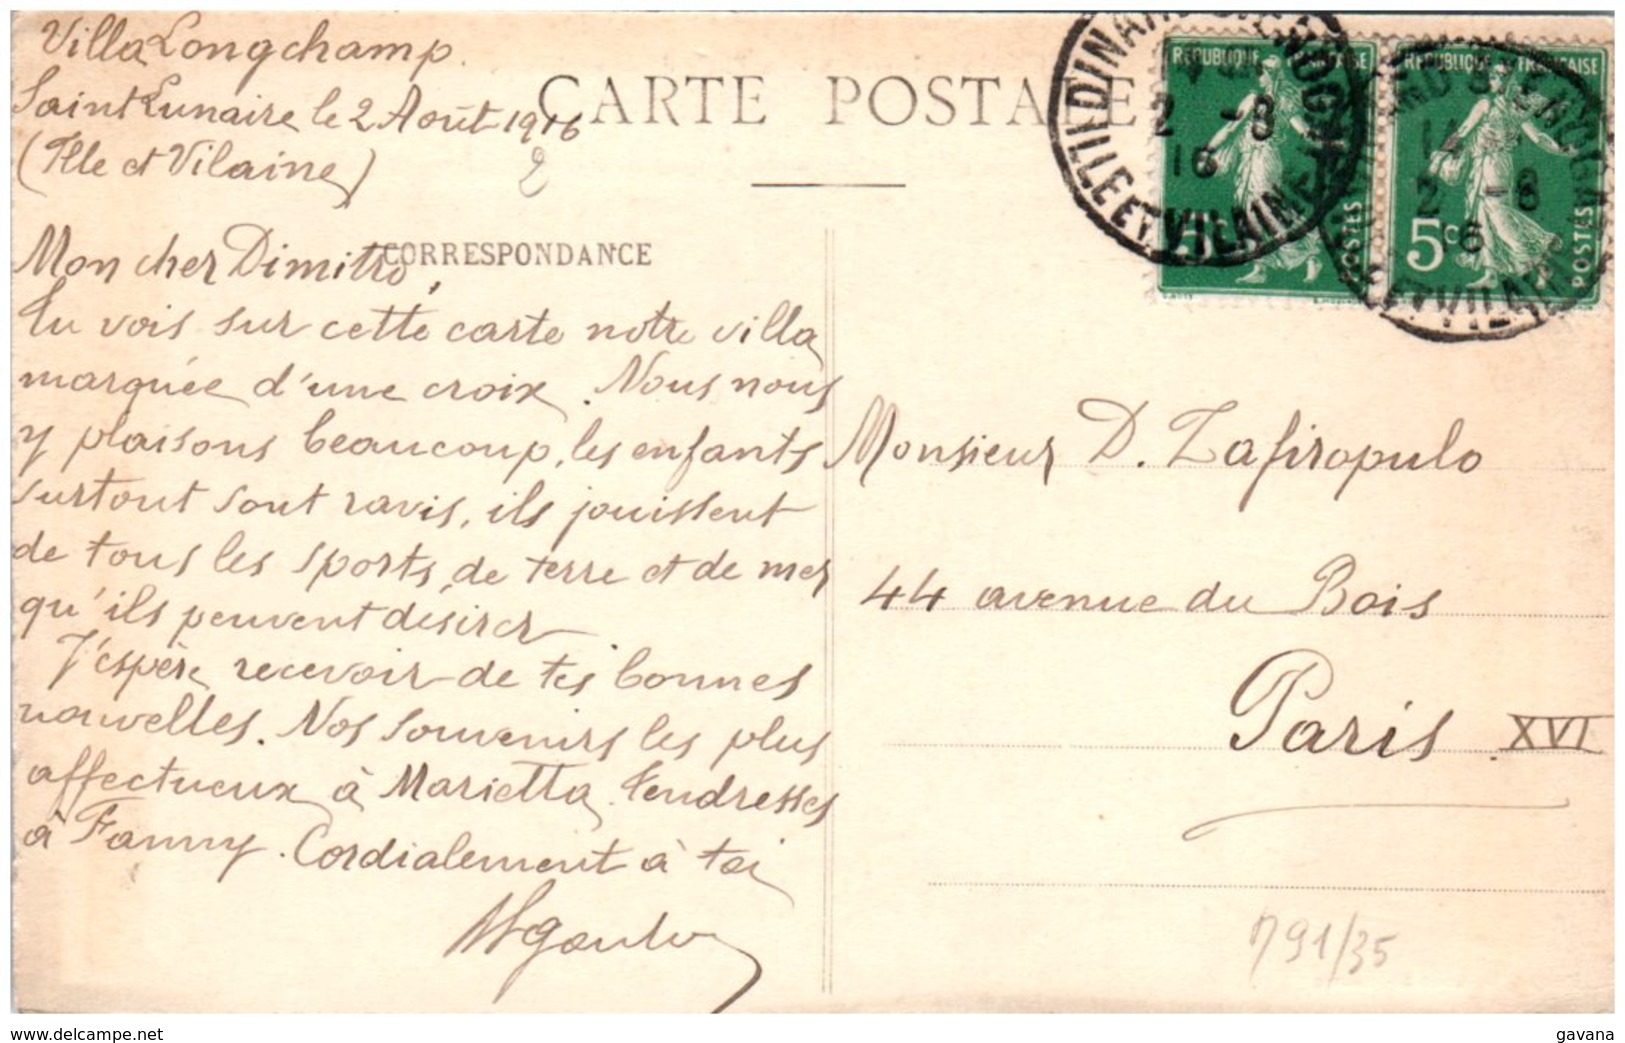 Villa Longchamp.
Saint Lunaire le 2 Août 1916
(Ille et Vilaine)
2
CARTE POSTALE
CORRESPONDANCE
Mon cher Dimitro,
Tu vois sur cette carte notre villa
marquée d'une croix. Nous nous
y plaisons beaucoup, les enfants
surtout sont ravis, ils jouissent
de tous les sports de terre et de mer
qu'ils peuvent désirer
J'espère recevoir de tes bonnes
nouvelles. Nos souvenirs les plus
affectueux à Marietta. Tendresses
à Fanny. Cordialement à toi
REPUBLIQUE FRANÇAISE
5c POSTES
REPUBLIQUE FRANÇAISE
5c POSTES
DINARD ST ENOGAT
2 -8
16
ILLE ET VILAINE
14
2 -8
16
ET VILAINE
Monsieur D. Zafiropulo
44 avenue du Bois
Paris XVI
791/35
www.delcampe.net
gavana